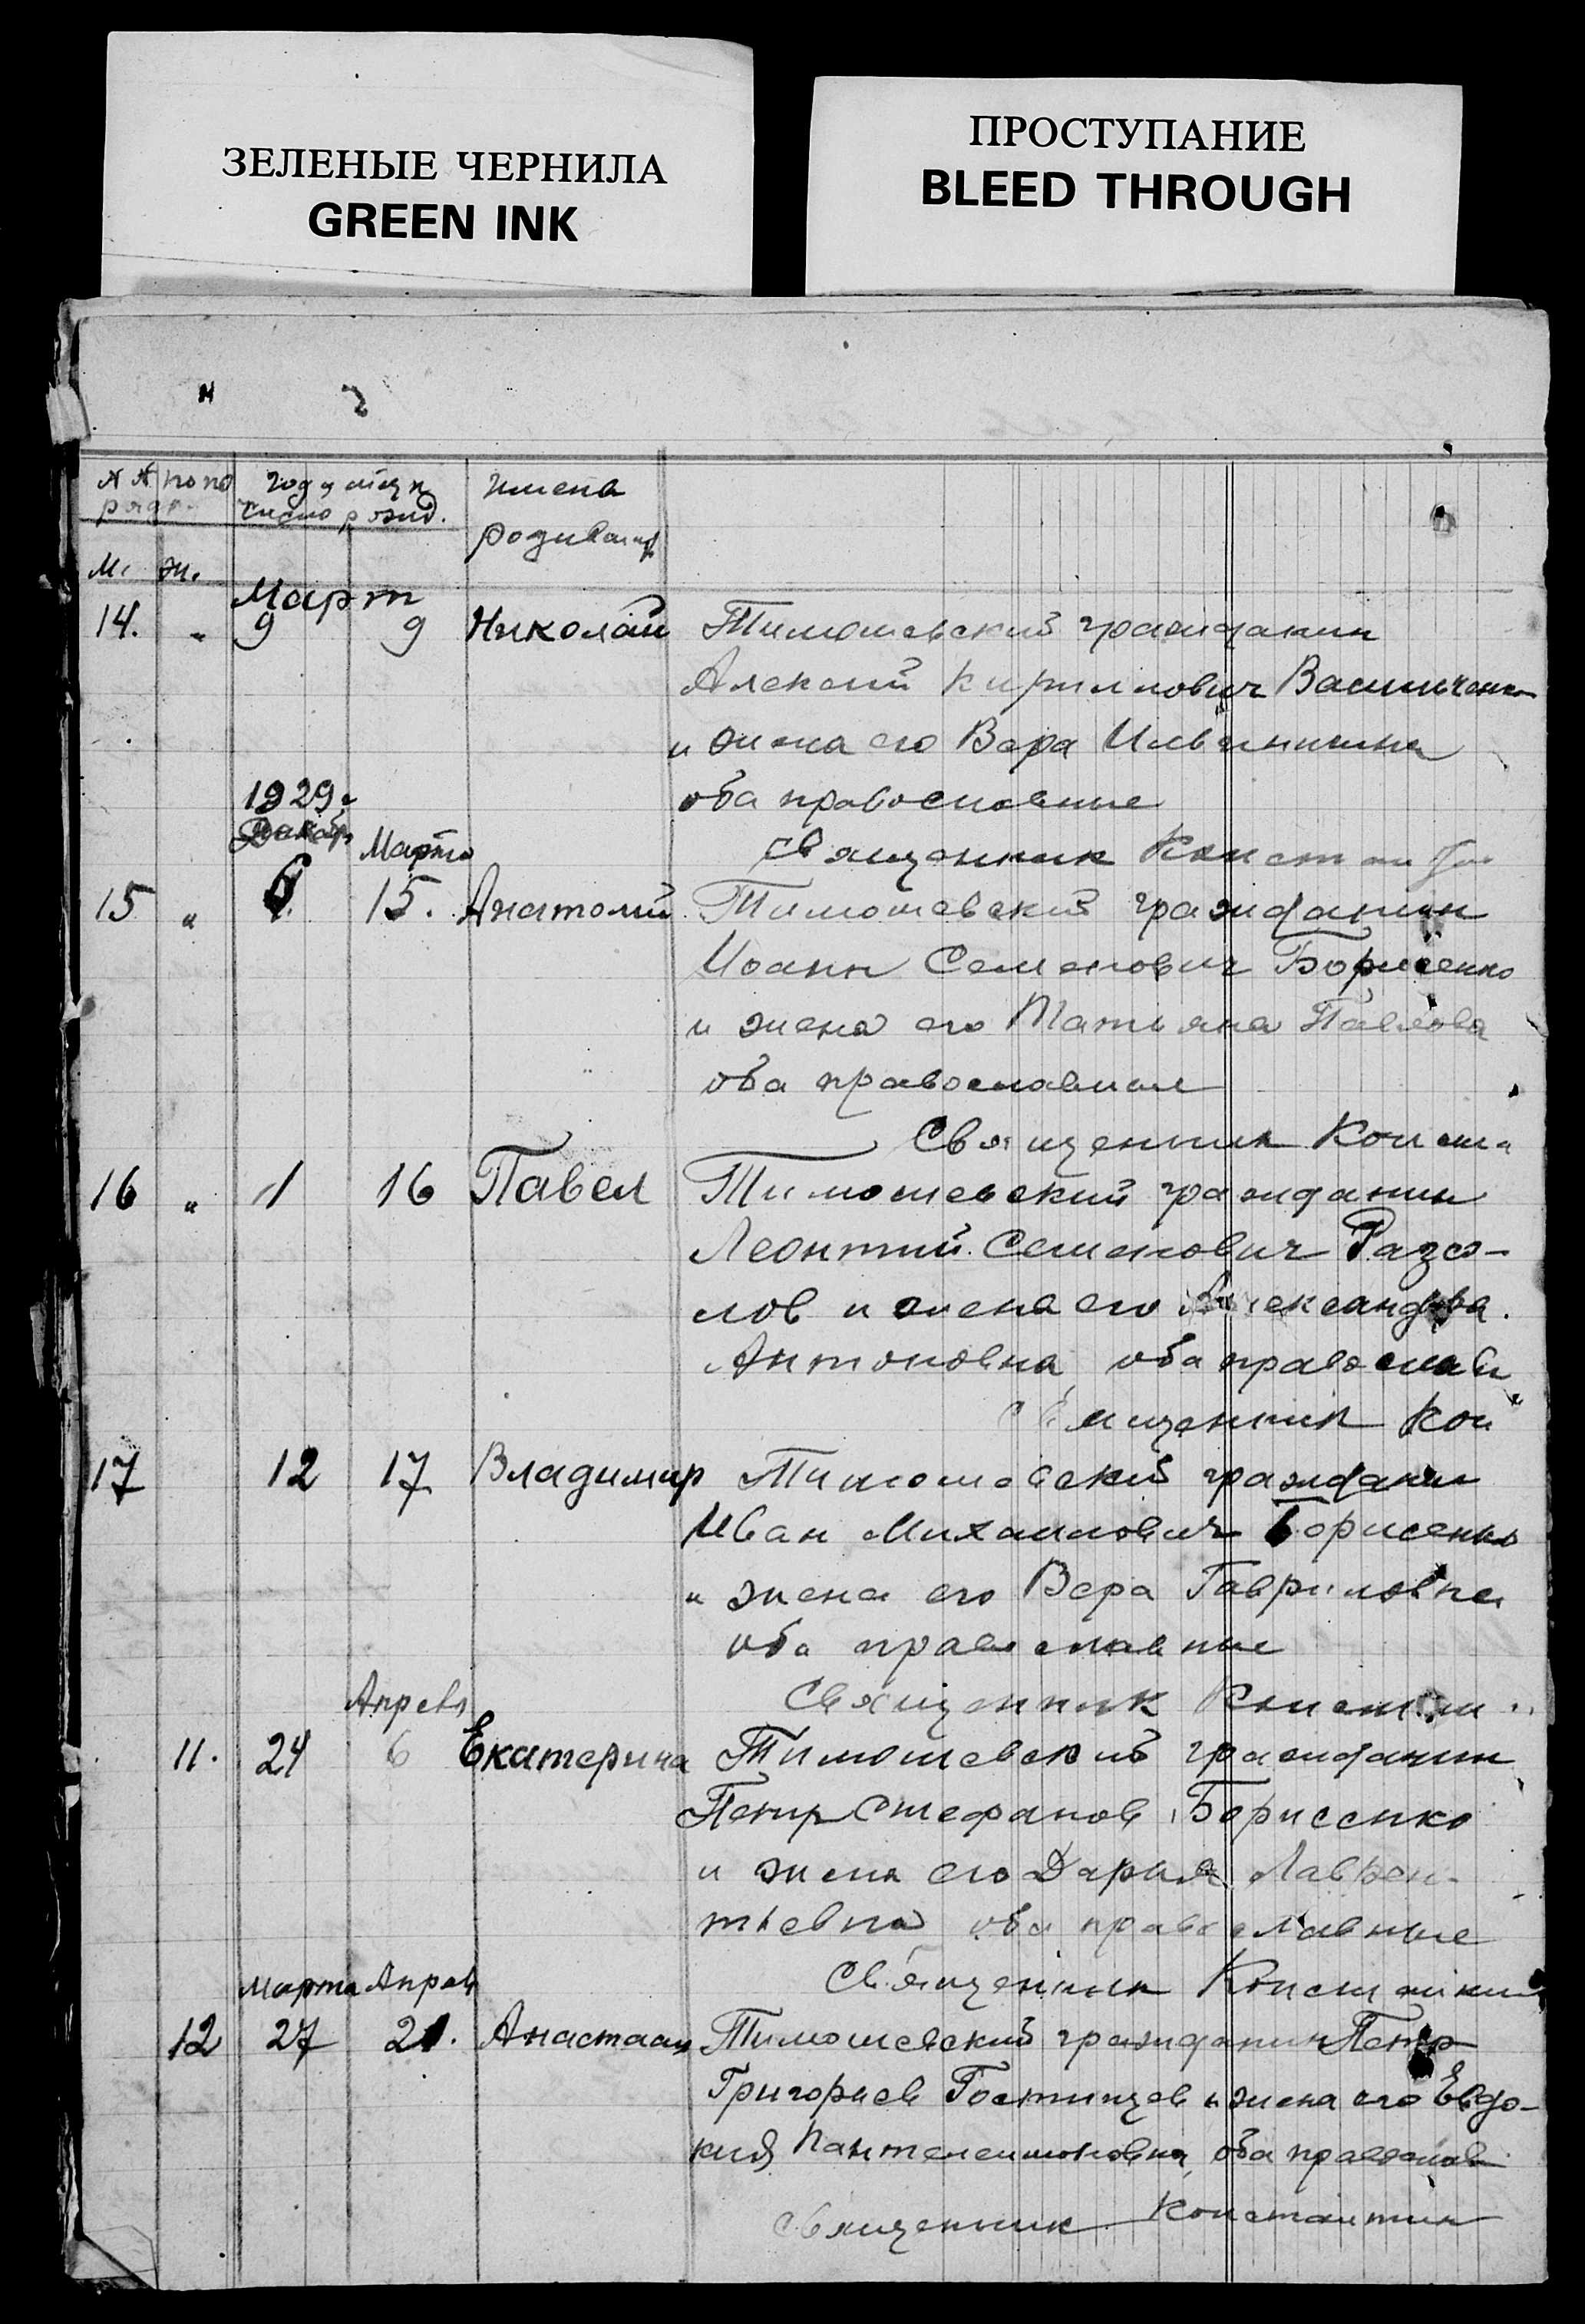 ЗЕЛЕНЫЕ ЧЕРНИЛА
GREEN INK
ПРОСТУПАНИЕ
BLEED THROUGH
№ № по по год и число рожд. имена родивш
м. ж.
Март
14. " 9 9 Николай Тимошевский гражданин
Алексей Кириллович Васильченко
и жена его Вера Ильинична
оба православные
1929 г
Декабр Марта священник Констан
15 " 15. Анатолий Тимошевский гражданин
Иоанн Семенович Борисенко
и жена его Татьяна Павлова
оба православные
Священник Конста
16 " 1 16 Павел Тимошевский гражданин
Леонтий Семенович Разсо-
лов и жена его Александра
Антоновна оба православн
священник Кон
17 12 17 Владимир Тимошевский гражданин
Иван Михайлович Борисенко
и жена его Вера Гавриловна
оба православные
Апреля Священник Констан
11. 24 6 Екатерина Тимошевский гражданин
Петр Стефанов Борисенко
и жена его Дария Лаврен-
тьевна оба православные
марта Апрель Священник Константин
12 27 21. Анастасия Тимошевский гражданин Петр
Григорьев Гостищев и жена его Евдо-
кия Пантелеимоновна оба православ
священник Константин